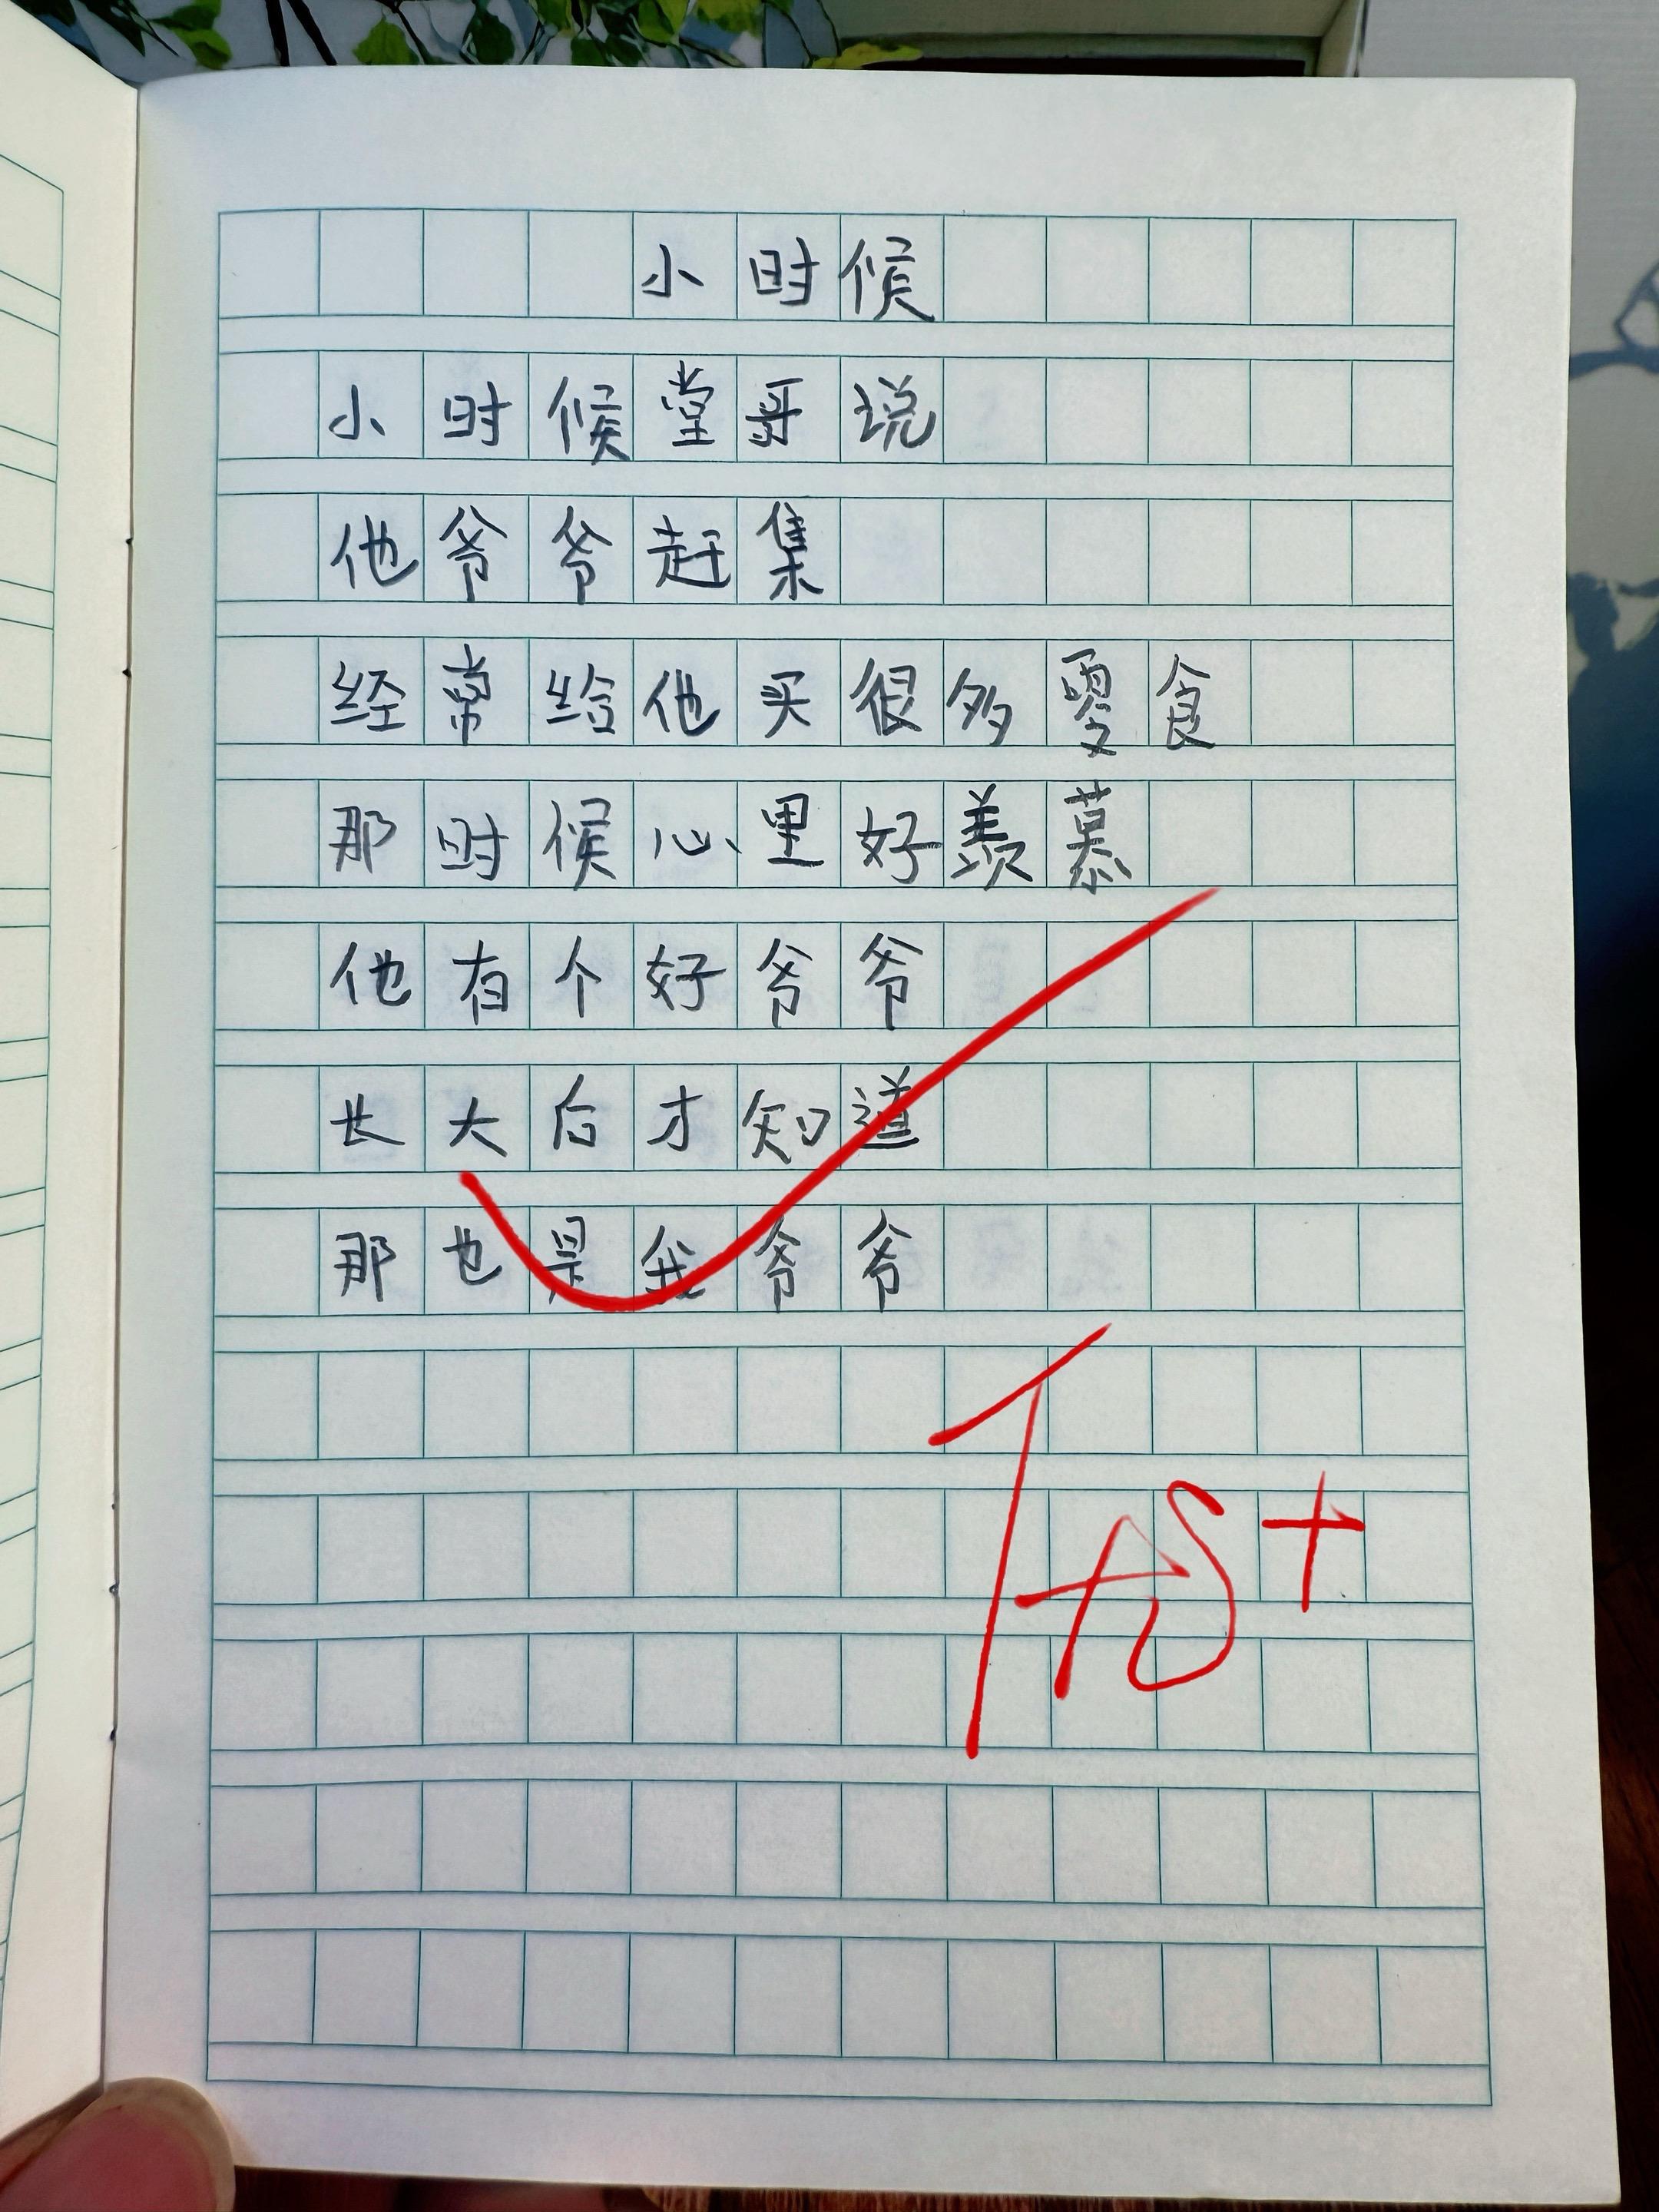 小时候
小时候堂哥说
他爷爷赶集
经常给他买很多零食
那时候心里好羡慕
他有个好爷爷
长大后才知道
那也是我爷爷